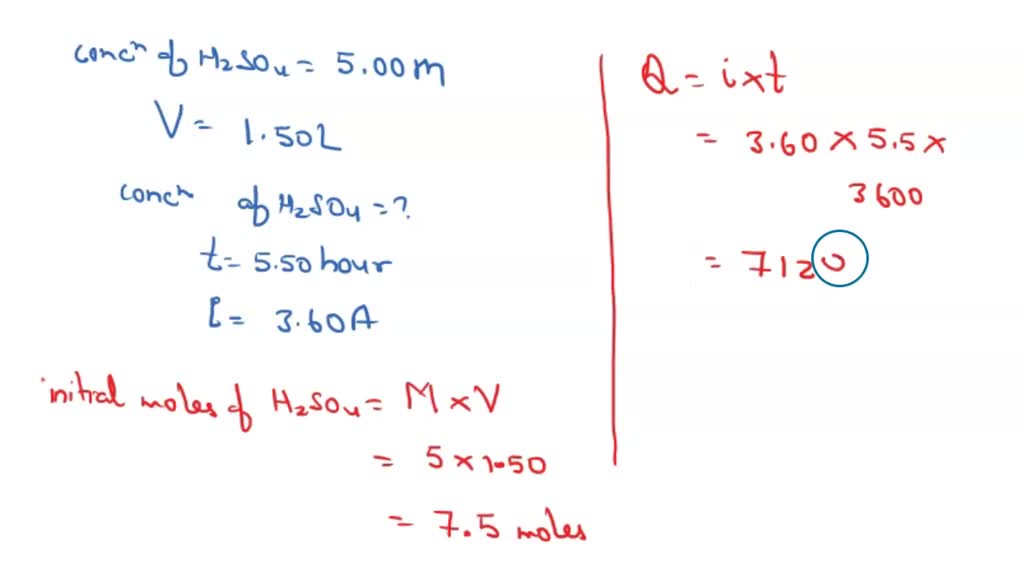 concⁿ of H₂SO₄ = 5.00M
V = 1.50L
concⁿ of H₂SO₄ = ?
t = 5.50 hour
I = 3.60A
initial moles of H₂SO₄ = M × V
= 5 × 1.50
= 7.5 moles
Q = i × t
= 3.60 × 5.5 ×
3600
= 7120